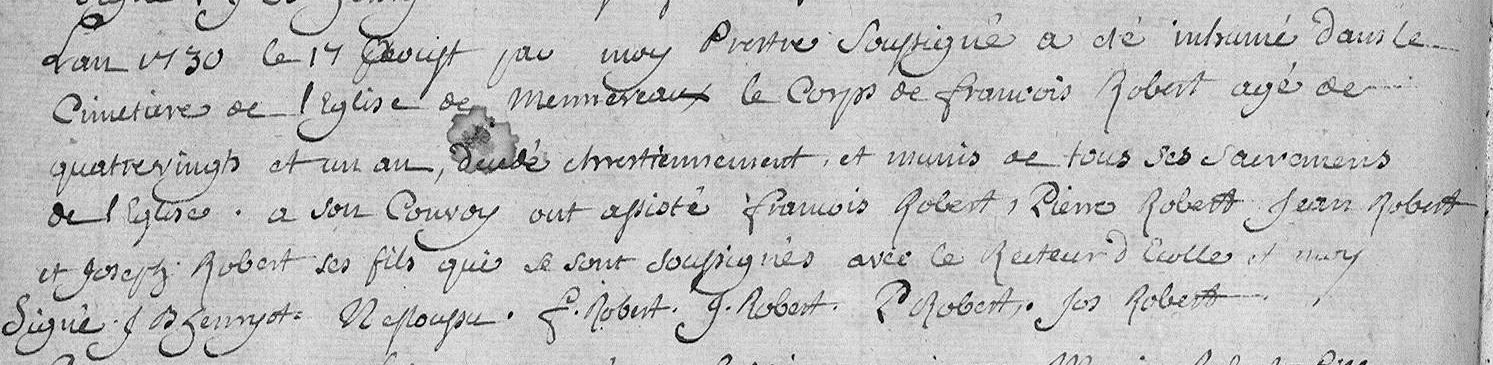 Lan 1730 le 17 Aoust par moy Prestre Soussigné a été inhumé dans le
Cimetiere de l'Eglise de Mennereaux le Corps de francois Robert agé de
quatrevingts et un an, decedé chrestiennement, et munis de tous ses sacremens
de l'Eglise. a son Convoy ont assisté francois Robert, Pierre Robert Jean Robert
et Joseph Robert ses fils qui se sont soussignés avec le Recteur d'Ecolle et moy
Signé. J B henryot. F. Robert. J. Robert. P Robert. Jos Robert